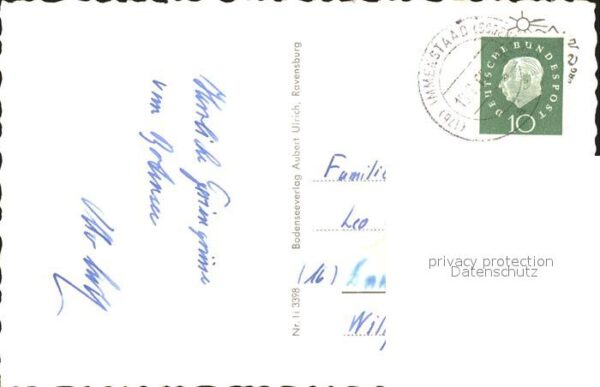 Herzliche Feriengrüsse
vom Bodensee
Nr. Ii 3398 Bodenseeverlag Aubert Ulrich, Ravensburg
(17b) IMMENSTAAD (BODENSEE)
DEUTSCHE BUNDESPOST
10
Familie
Leo
(16)
privacy protection
Datenschutz